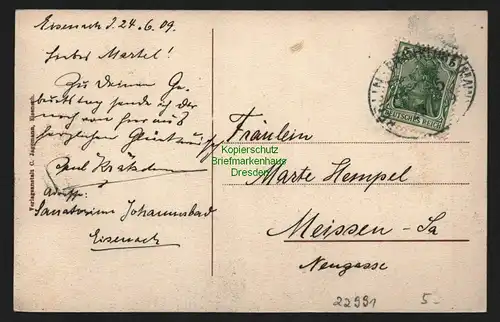 Eisenach d. 24.6.09.
Liebes Martel!
Zu Deinem Ge-
burtstag sende ich dir
noch von hier aus
herzlichen Glückwunsch
Paul
Adresse:
Sanatorium Johannesbad
Eisenach
Verlagsanstalt C. Jagemann, Eisenach
DEUTSCHES REICH
Fräulein
Kopierschutz
Briefmarkenhaus
Dresden
Marte Hempel
Meissen - Sa
Neugasse
22991
5-